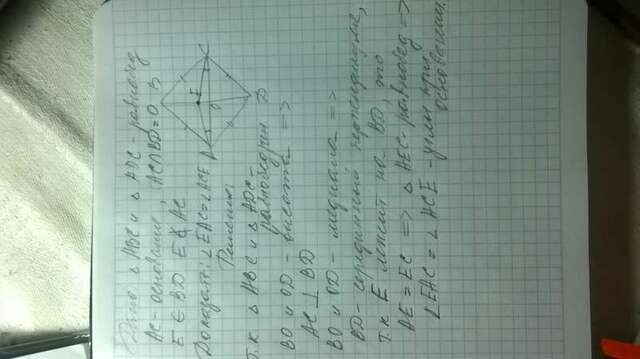 Дано: △ ABC и △ ADC - равнобед
AC - основание, AC∩BD=O B
E ∈ BD E ∉ AC
Доказать: ∠EAC = ∠ACE
Решение.
т.к. △ ABC и △ ADC -
равнобедрен
BO и OD - высота =>
AC ⊥ BD
BO и OD - медиана =>
BD - серединный перпендикуляр,
т.к E лежит на BD, то
AE = EC => △ AEC - равнобед =>
∠EAC = ∠ACE - углы при
основании.
C
E
O
A
D